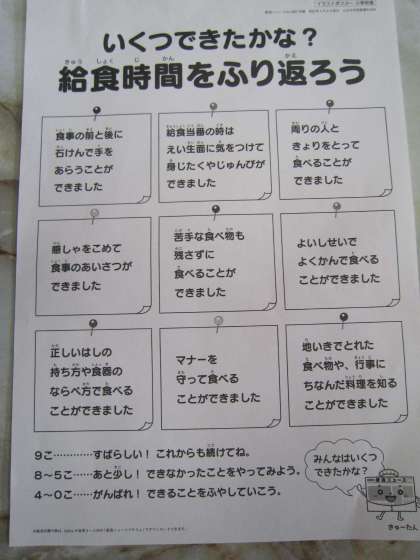 いくつできたかな？
給食時間をふり返ろう
食事の前と後に
石けんで手を
あらうことが
できました
給食当番の時は
えい生面に気をつけて
身じたくやじゅんびが
できました
周りの人と
きょりをとって
食べることが
できました
感しゃをこめて
食事のあいさつが
できました
苦手な食べ物も
残さずに
食べることが
できました
よいしせいで
よくかんで食べる
ことができました
正しいはしの
持ち方や食器の
ならべ方で食べる
ことができました
マナーを
守って食べる
ことができました
地いきでとれた
食べ物や、行事に
ちなんだ料理を知る
ことができました
9こ…………すばらしい！ これからも続けてね。
8～5こ……あと少し！ できなかったことをやってみよう。
4～0こ……がんばれ！ できることをふやしていこう。
みんなはいくつ
できたかな？
給食ニュース
きゅーたん